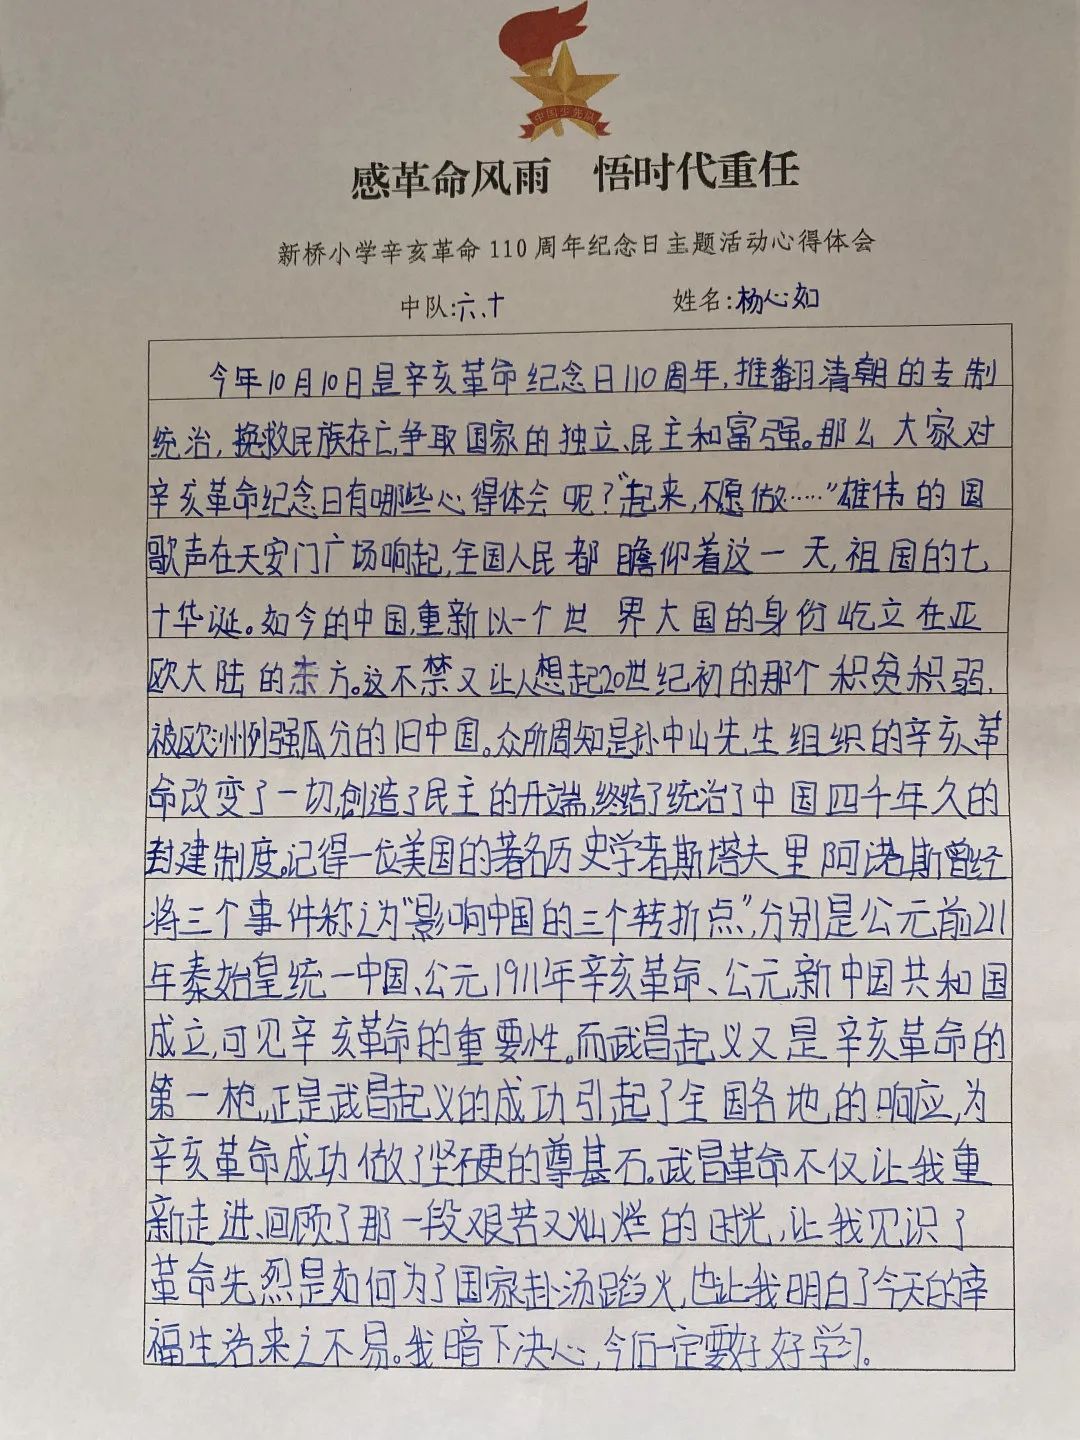 中国少先队
感革命风雨 悟时代重任
新桥小学辛亥革命110周年纪念日主题活动心得体会
中队:六、十 姓名:杨心如
今年10月10日是辛亥革命纪念日110周年,推翻清朝的专制
统治,换救民族存亡,争取国家的独立、民主和富强。那么大家对
辛亥革命纪念日有哪些心得体会呢?“起来,不愿做……”雄伟的国
歌声在天安门广场响起,全国人民都瞻仰着这一天,祖国的七
十华诞。如今的中国,重新以一个世界大国的身份屹立在亚
欧大陆的东方。这不禁又让人想起20世纪初的那个积贫积弱,
被欧洲列强瓜分的旧中国。众所周知是孙中山先生组织的辛亥革
命改变了一切,创造了民主的开端,终结了统治了中国四千年久的
封建制度。记得一位美国的著名历史学者斯塔夫里阿诺斯曾经
将三个事件称之为“影响中国的三个转折点”,分别是公元前211
年秦始皇统一中国、公元1911年辛亥革命、公元新中国共和国
成立,可见辛亥革命的重要性。而武昌起义又是辛亥革命的
第一枪,正是武昌起义的成功引起了全国各地的响应,为
辛亥革命成功做了坚硬的尊基石。武昌革命不仅让我重
新走进、回顾了那一段艰苦又灿烂的时光,让我见识了
革命先烈是如何为了国家赴汤蹈火,也让我明白了今天的幸
福生活来之不易。我暗下决心,今后一定要好好学习.